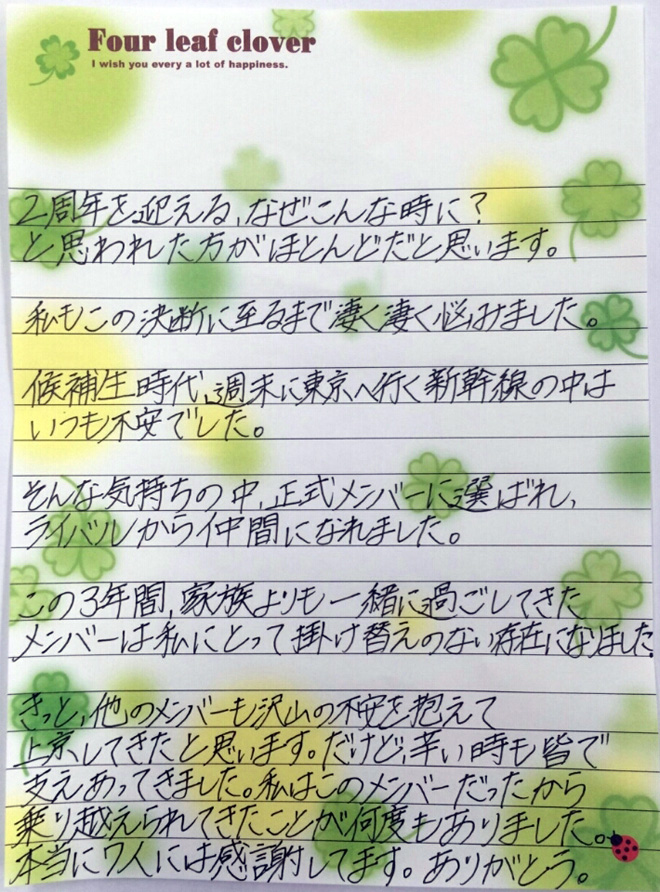 Four leaf clover
I wish you every a lot of happiness.
2周年を迎える、なぜこんな時に？
と思われた方がほとんどだと思います。
私もこの決断に至るまで凄く凄く悩みました。
候補生時代、週末に東京へ行く新幹線の中は
いつも不安でした。
そんな気持ちの中、正式メンバーに選ばれ、
ライバルから仲間になれました。
この3年間、家族よりも一緒に過ごしてきた
メンバーは私にとって掛け替えのない存在になりました。
きっと、他のメンバーも沢山の不安を抱えて
上京してきたと思います。だけど、辛い時も皆で
支えあってきました。私はこのメンバーだったから
乗り越えられてきたことが何度もありました。
本当に7人には感謝してます。ありがとう。